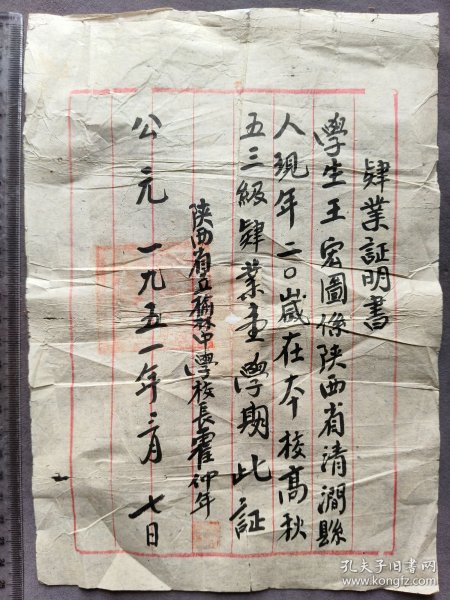 肄業証明書
學生王宏圖係陝西省清澗縣
人現年二〇歲在本校高秋
五三級肄業壹學期此証
陝西省立榆林中學校長霍仲年
公元一九五一年二月七日
孔夫子旧书网
www.kongfz.com